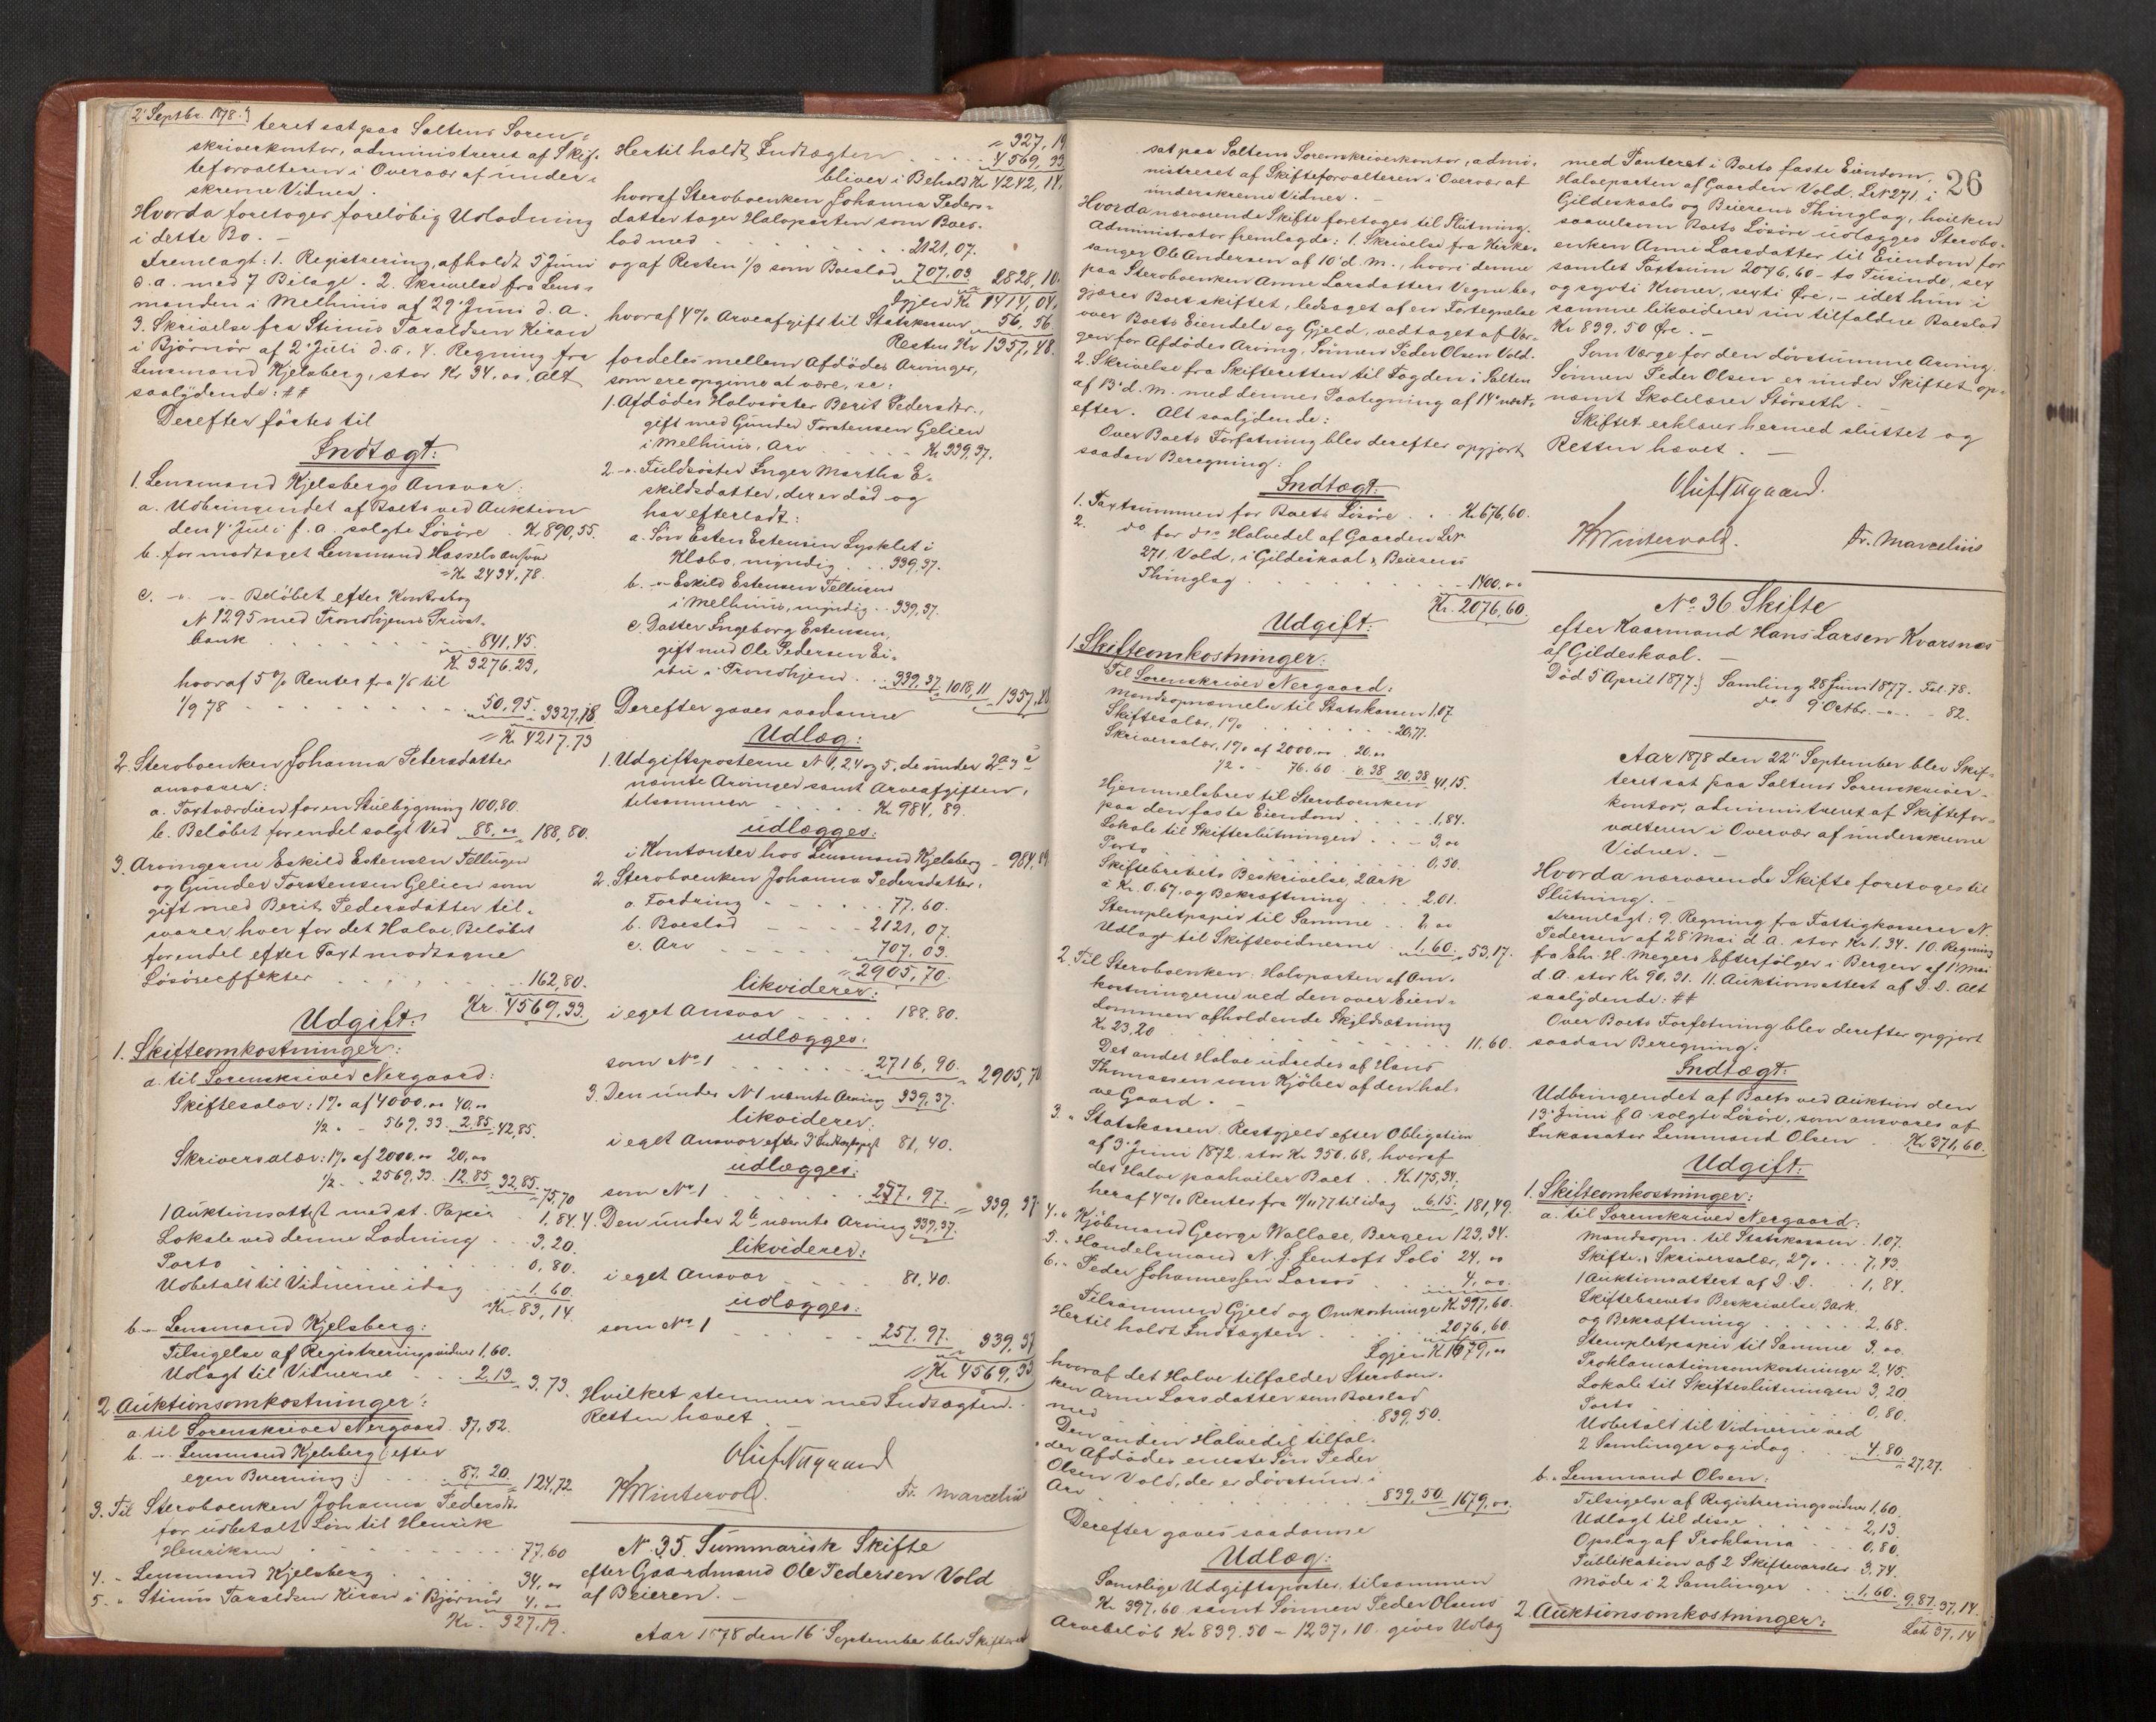 2' Septbr. 1878.
teret sat paa Saltens Soren-
skriverkontor, administreret af Skif-
teforvalteren i Overvær af under-
skrevne Vidner.
Hvorda foretoges foreløbig Udlodning
i dette Bo. –
Fremlagt: 1. Registrering, afholdt 5 Juni
d. a. med 7 Bilage. 2. Skrivelse fra Lens-
manden i Melhuus af 29' Juni d. A.
3. Skrivelse fra Stinus Taraldsen Kiran
i Bjørnør af 2' Juli d. a. 4. Regning fra
Lensmand Kjelsberg, stor Kr 34.00, Alt
saalydende: ##
Derefter førtes til
Indtægt:
1. Lensmand Kjelsbergs Ansvar:
a. Udbringendet af Boets ved Auktion
den 4' Juli f. a. solgte Løsøre . Kr 890,55.
b. for modtaget Lensmand Hassels ansvar
= Kr 2434,78.
c. -"- -"- Beløbet efter Kontrabog
N 1295 med Trondhjems Privat-
bank . . . . . . 841,45.
Kr. 3276.23,
hvoraf 5% Renter fra 1/5 til
1/9 78 . . . . . 50,95. 3327,18
= Kr 4217.73
2. Stervboenken Johanna Petersdatter
ansvarer:
a. Taxtværdien for en Stuebygning 100,80.
b. Beløbet for endel solgt Ved 88,00 188,80.
3. Arvingerne Eskild Estensen Tellugen
og Gunder Torstensen Gelien som
gift med Berit Pedersdatter til-
svarer, hver for det Halve, Beløbet
for endel efter Taxt modtagne
Løsøreeffekter . . . . 162,80.
Kr. 4569,33.
Udgift:
1. Skifteomkostninger:
a. til Sorenskriver Nergaard:
Skiftesalær: 1% af 4000.00 40,00
1/2 " - 569,33 2,85. 42,85.
Skriversalær: 1% af 2000.00 20,00
1/2 . - 2569,33. 12.85 32,85. 75,70
1 Auktionsattest med st. Papir . 1,84.
Lokale ved denne Lodning . . . 3,20.
Porto . . . . . 0,80.
Udbetalt til Vidnerne idag . 1,60.
Kr. 83,14.
b. - Lensmand Kjelsberg:
Tilsigelse af Registreringsvidner 1,60.
Udlagt til Vidnerne . . . 2,13 3,73.
2. Auktionsomkostninger:
a. til Sorenskriver Nergaard. 37,52.
b. - Lensmand Kjelsberg (: efter
egen Beregning :) . . 87.20. 124,72.
3. Til Stervboenken Johanna Pedersdr.
for udbetalt Løn til Henrik
Henriksen . . . . . 77,60
4. - Lensmand Kjelsberg . . . 34,00
5. " Stinus Taraldsen Kiran i Bjørnør 4,00
Kr. 327,19.
= 327,19
Hertil holdt Indtægten . . . 4569,33
bliver i Behold Kr 4242,14.
hvoraf Stervboenken Johanna Peders-
datter tager Halvparten som Boes-
lod med . . . . . 2121,07.
og af Resten 1/3 som Boeslod 707.03 2828,10.
Igjen Kr. 1414,04,
hvoraf 4% Arveafgift til Statskassen 56,56.
Resten Kr 1357,48.
fordeles mellem Afdødes Arvinger,
som ere opgivne at være, se:
1. Afdødes Halvsøster Berit Pedersdtr.,
gift med Gunder Torstensen Gelien
i Melhuus, Arv . . . . . Kr 339,37.
2. -"- Fuldsøster Inger Martha E-
skildsdatter, der er død og
har efterladt:
a. Søn Esten Estensen Lysklet i
Klæbo, myndig . . . 339,37.
b. -"- Eskild Estensen Tellugen
i Melhuus, myndig . . 339,37.
c. Datter Ingeborg Estensen,
gift med Ole Pedersen Ei-
stu i Trondhjem . . 339,37 1018,11 1357,48
Derefter gaves saadanne
Udlæg:
1. Udgiftsposterne N 1, 2, 4 og 5, de under 2 a og c
nævnte Arvinger samt Arveafgiften,
tilsammen . . . . Kr 984,89.
udlægges:
i Kontanter hos Lensmand Kjelsberg - 984,89
2. Stervboenken Johanna Pedersdatter.
a. Fordring . . . . 77.60.
b. Boeslod . . . . 2121,07.
c. Arv . . . . 707.03.
= 2905,70.
likviderer:
i eget Ansvar . . . . 188.80.
udlægges:
som No 1 . . . . 2716,90. 2905,70
3. Den under N 1 nævnte Arving 339,37.
likviderer:
i eget Ansvar efter 3' Indtægtspost 81,40.
udlægges:
som No 1 . . . . 257,97. 339,37
4. Den under 2 b nævnte Arving 339,37.
likviderer:
i eget Ansvar . . . . 81,40.
udlægges:
som No 1 . . . . 257,97. 339,37
Kr 4569,33
Hvilket stemmer med Indtægten.
Retten hævet.
Oluf Nergaard
K Wintervold. Fr. Marcelius
No 35. Summarisk Skifte
efter Gaardmand Ole Pedersen Vold
af Beieren. –
Aar 1878 den 16' September blev Skifteret
26
sat paa Saltens Sorenskriverkontor, admi-
nistreret af Skifteforvalteren i Overvær af
underskrevne Vidner. –
Hvorda nærværende Skifte foretoges til Slutning.
Administrator fremlagde: 1. Skrivelse fra Kirke-
sanger Ole Andersen af 10' d. M., hvori denne
paa Stervboenken Anne Larsdatters Vegne be-
gjærer Boet skiftet, ledsaget af en Fortegnelse
over Boets Eiendele og Gjeld, vedtaget af Vær-
gen for Afdødes Arving, Sønnen Peder Olsen Vold.
2. Skrivelse fra Skifteretten til Fogden i Salten
af 13' d. M. med dennes Paategning af 14' næst-
efter. Alt saalydende:
Over Boets Forfatning blev derefter opgjort
saadan Beregning:
Indtægt:
1. Taxtsummen for Boets Løsøre . . . Kr 676,60.
2. do for dets Halvedel af Gaarden LNr
271. Vold, i Gildeskaal & Beierens
Thinglag . . . . 1400.00
Kr. 2076,60.
Udgift:
1. Skifteomkostninger:
Til Sorenskriver Nergaard:
Mandsopnævnelse til Statskassen 1,07
Skiftesalær, 1% . . . . 20,77.
Skriversalær, 1% af 2000.00 20.00
1/2 " - 76.60 0.38 20,38 41,15.
Hjemmelsbrev til Stervboenken
paa den faste Eiendom . . . . 1,84.
Lokale til Skifteslutningen . . . 3,00
Porto . . . . . 0,50.
Skiftebrevets Beskrivelse, 2 Ark
à Kr. 0.67. og Bekræftning . . . 2,01.
Stempletpapir til Samme . . 2,00
Udlagt til Skiftevidnerne . 1,60. 53,17.
2. Til Stervboenken: Halvparten af Om-
kostningerne ved den over Eien-
dommen afholdende Skyldsætning
Kr. 23,20 . . . . 11.60.
Det andet Halve udredes af Hans
Thomassen som Kjøber af den hal-
ve Gaard. –
3. " Statskassen. Restgjeld efter Obligation
af 3' Juni 1872. stor Kr. 350.68, hvoraf
det Halve paahviler Boet . . Kr. 175,34,
heraf 4% Renter fra 1/11 77 til idag 6,15. 181,49.
4. " Kjøbmand George Wallace, Bergen 123,34.
5. " Handelsmand N. J. Jentoft Solø 24,00
6. " Peder Johannessen Larsos . . . 4,00
Tilsammen Gjeld og Omkostninger Kr 397,60.
Hertil holdt Indtægten . . . 2076,60.
Igjen Kr 1679,00
hvoraf det Halve tilfalder Stervboen-
ken Anne Larsdatter som Boeslod
med . . . . 839,50.
Den anden Halvedel tilfal-
der Afdødes eneste Søn Peder
Olsen Vold, der er døvstum, i
Arv . . . . 839,50 1679,00.
Derefter gaves saadanne
Udlæg:
Samtlige Udgiftsposter, tilsammen
Kr. 397,60 samt Sønnen Peder Olsens
Arvebeløb Kr 839.50 – 1237,10. gives Udlæg
med Panteret i Boets faste Eiendom,
Halveparten af Gaarden Vold, LNr 271, i
Gildeskaals og Beierens Thinglag, hvilken
saavelsom Boets Løsøre udlægges Stervbo-
enken Anne Larsdatter til Eiendom for
samlet Taxtsum 2076,60 – to Tusinde, sex
og sytti Kroner, sexti Øre, – idet hun i
samme likviderer sin tilfaldne Boeslod
Kr 839.50 Øre.
Som Værge for den døvstumme Arving
Sønnen Peder Olsen er under Skiftet op-
nævnt Skolelærer Storseth. –
Skiftet erklæres hermed sluttet og
Retten hævet. –
Oluf Nergaard.
K Wintervold. Fr. Marcelius
No 36 Skifte
efter Kaarmand Hans Larsen Kvarsnæs
af Gildeskaal. –
Død 5 April 1877. Samling 28 Juni 1877. Fol. 78.
do 9' Octbr. -"- - 82.
Aar 1878 den 22' September blev Skif-
teret sat paa Saltens Sorenskriver-
kontor, administreret af Skiftefor-
valteren i Overvær af underskrevne
Vidner. –
Hvorda nærværende Skifte foretoges til
Slutning. –
Fremlagt: 9. Regning fra Fattigkasserer N.
Pedersen af 28' Mai d. A. stor Kr 1,34. 10. Regning
fra Chr. H. Meyers Efterfølger i Bergen af 1' Mai
d. A. stor Kr 90,31. 11. Auktionsattest af D. D. Alt
saalydende: ##
Over Boets Forfatning blev derefter opgjort
saadan Beregning:
Indtægt:
Udbringendet af Boets ved Auktion den
13' Juni f. A. solgte Løsøre, som ansvares af
Inkassator Lensmand Olsen . Kr. 371,60.
Udgift:
1. Skifteomkostninger:
a. til Sorenskriver Nergaard:
Mandsopn. til Statskassen . 1,07.
Skifte- & Skriversalær, 2% . . . 7,43.
1 Auktionsattest af D. D. . . 1,84.
Skiftebrevets Beskrivelse, 3 Ark.
og Bekræftning . . . . 2,68.
Stempletpapir til Samme 3,00.
Proklamationsomkostninger 2,45.
Lokale til Skifteslutningen 3,20
Porto . . . . 0,80.
Udbetalt til Vidnerne ved
2 Samlinger og idag . . 4,80. 27,27.
b. - Lensmand Olsen:
Tilsigelse af Registreringsvidner 1,60.
Udlagt til disse . . . . 2,13.
Opslag af Proklama . . . 0,80.
Publikation af 2 Skiftevarsler 3,74.
Møde i 2 Samlinger . . . 1,60. 9,87. 37,14.
2. Auktionsomkostninger:
Lat. 37,14